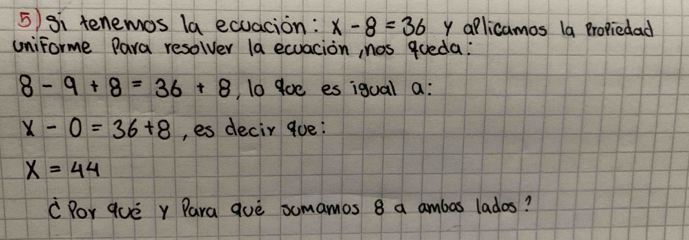 5) Si tenemos la ecuación: x - 8 = 36 y aplicamos la Propiedad
uniforme Para resolver la ecuación, nos queda:
8 - 9 + 8 = 36 + 8, lo que es igual a:
x - 0 = 36+8, es decir que:
x = 44
¿Por qué y Para qué sumamos 8 a ambos lados?